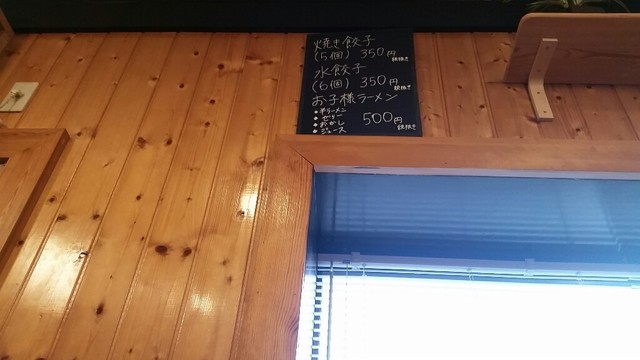 焼き餃子
(5個) 350円 税抜き
水餃子
(6個) 350円 税抜き
お子様ラーメン
◆半ラーメン
◆ゼリー
◆おかし
◆ジュース
500円 税抜き